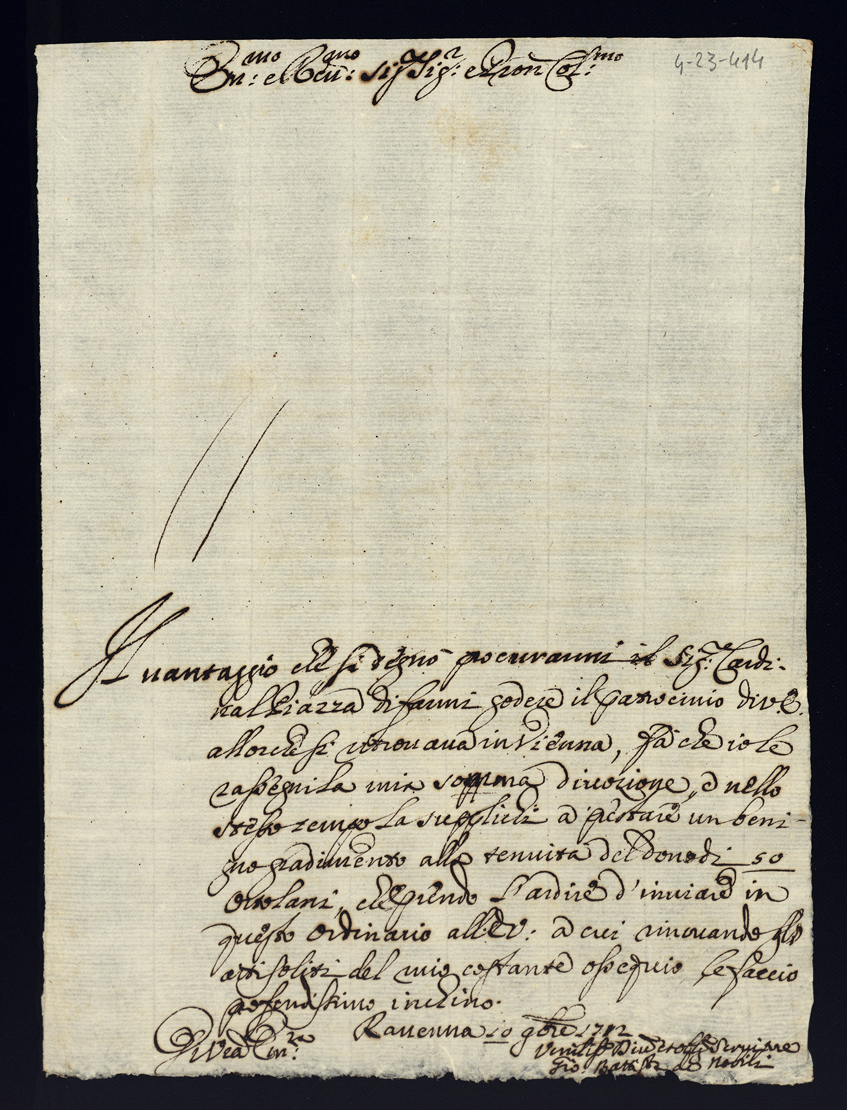 Em:mo e Rev:mo Sig:r Sig:r e Pron Col:mo
4-23-414
Il vantaggio che si degnò procurarmi il Sig:r Cardi-
nal Piazza di farmi godere il patrocinio di V.E.
allorche si ritrovava in Vienna, fà che io le
rassegni la mia somma divozione, e nello
stesso tempo la supplichi a prestare un beni-
gno gradimento alla tenuità del dono di 50
Ortolani, che prendo l'ardire d'inviare in
questo ordinario all'E.V: a cui rinovando gli
atti soliti del mio costante ossequio le faccio
profondissimo inchino.
Di V.ra Em:za Ravenna 10 9bre 1712
Umiliss Div et obb Servitore
Gio: Batt'a de Nobili